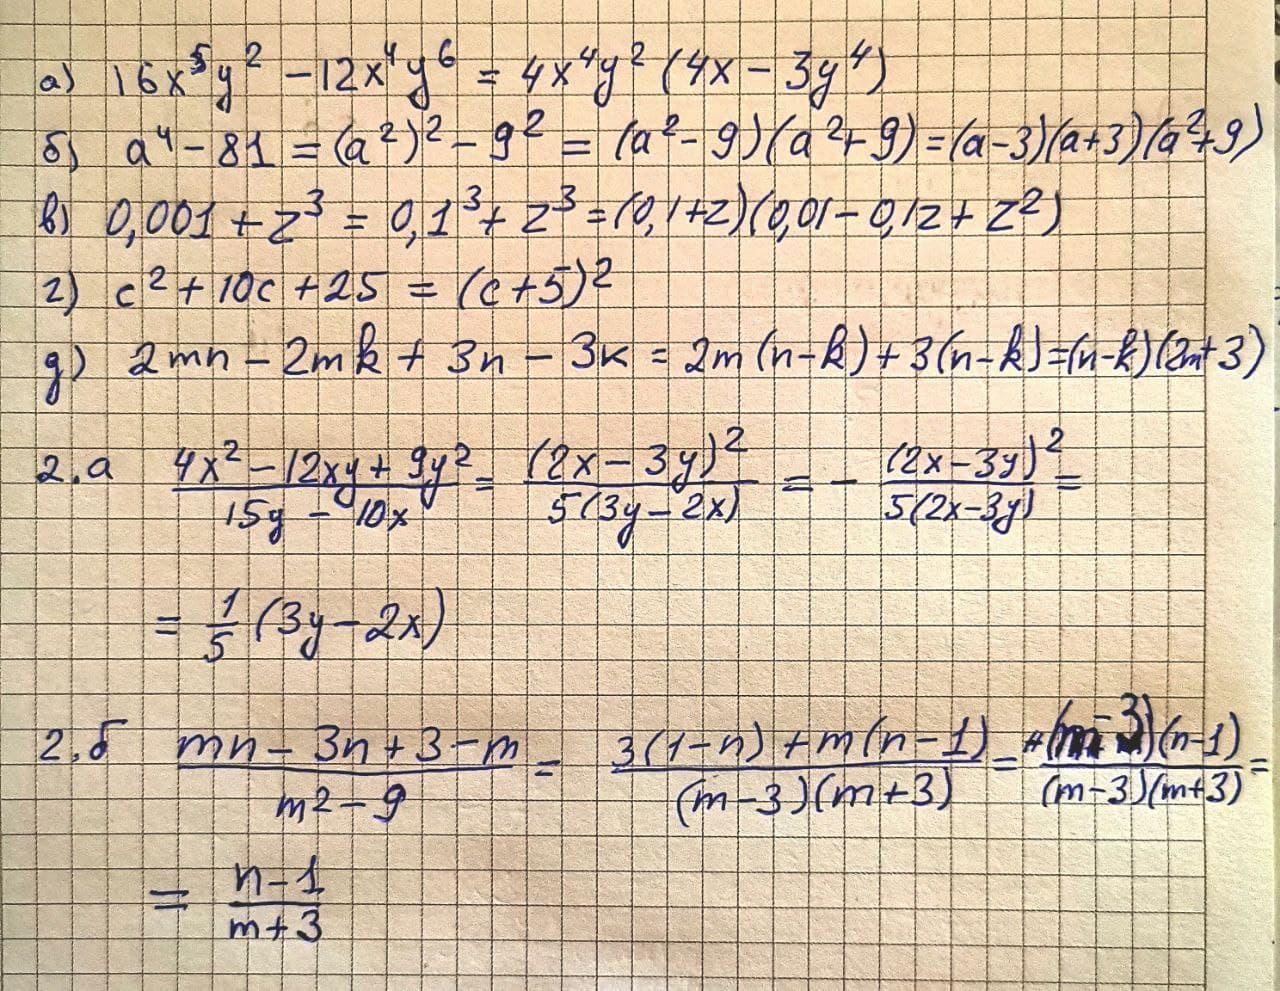 а) 16x⁵y² - 12x⁴y⁶ = 4x⁴y² (4x - 3y⁴)
б) a⁴ - 81 = (a²)² - 9² = (a² - 9)(a² + 9) = (a-3)(a+3)(a²+9)
в) 0,001 + z³ = 0,1³ + z³ = (0,1+z)(0,01 - 0,1z + z²)
г) c² + 10c + 25 = (c+5)²
д) 2mn - 2mk + 3n - 3k = 2m(n-k) + 3(n-k) = (n-k)(2m+3)
2.а (4x² - 12xy + 9y²)/(15y - 10x) = (2x - 3y)²/5(3y - 2x) = - (2x-3y)²/5(2x-3y) =
= 1/5 (3y - 2x)
2.б (mn - 3n + 3 - m)/(m² - 9) = (3(1-n) + m(n-1))/(m-3)(m+3) = (m-3)(n-1)/(m-3)(m+3) =
= (n-1)/(m+3)